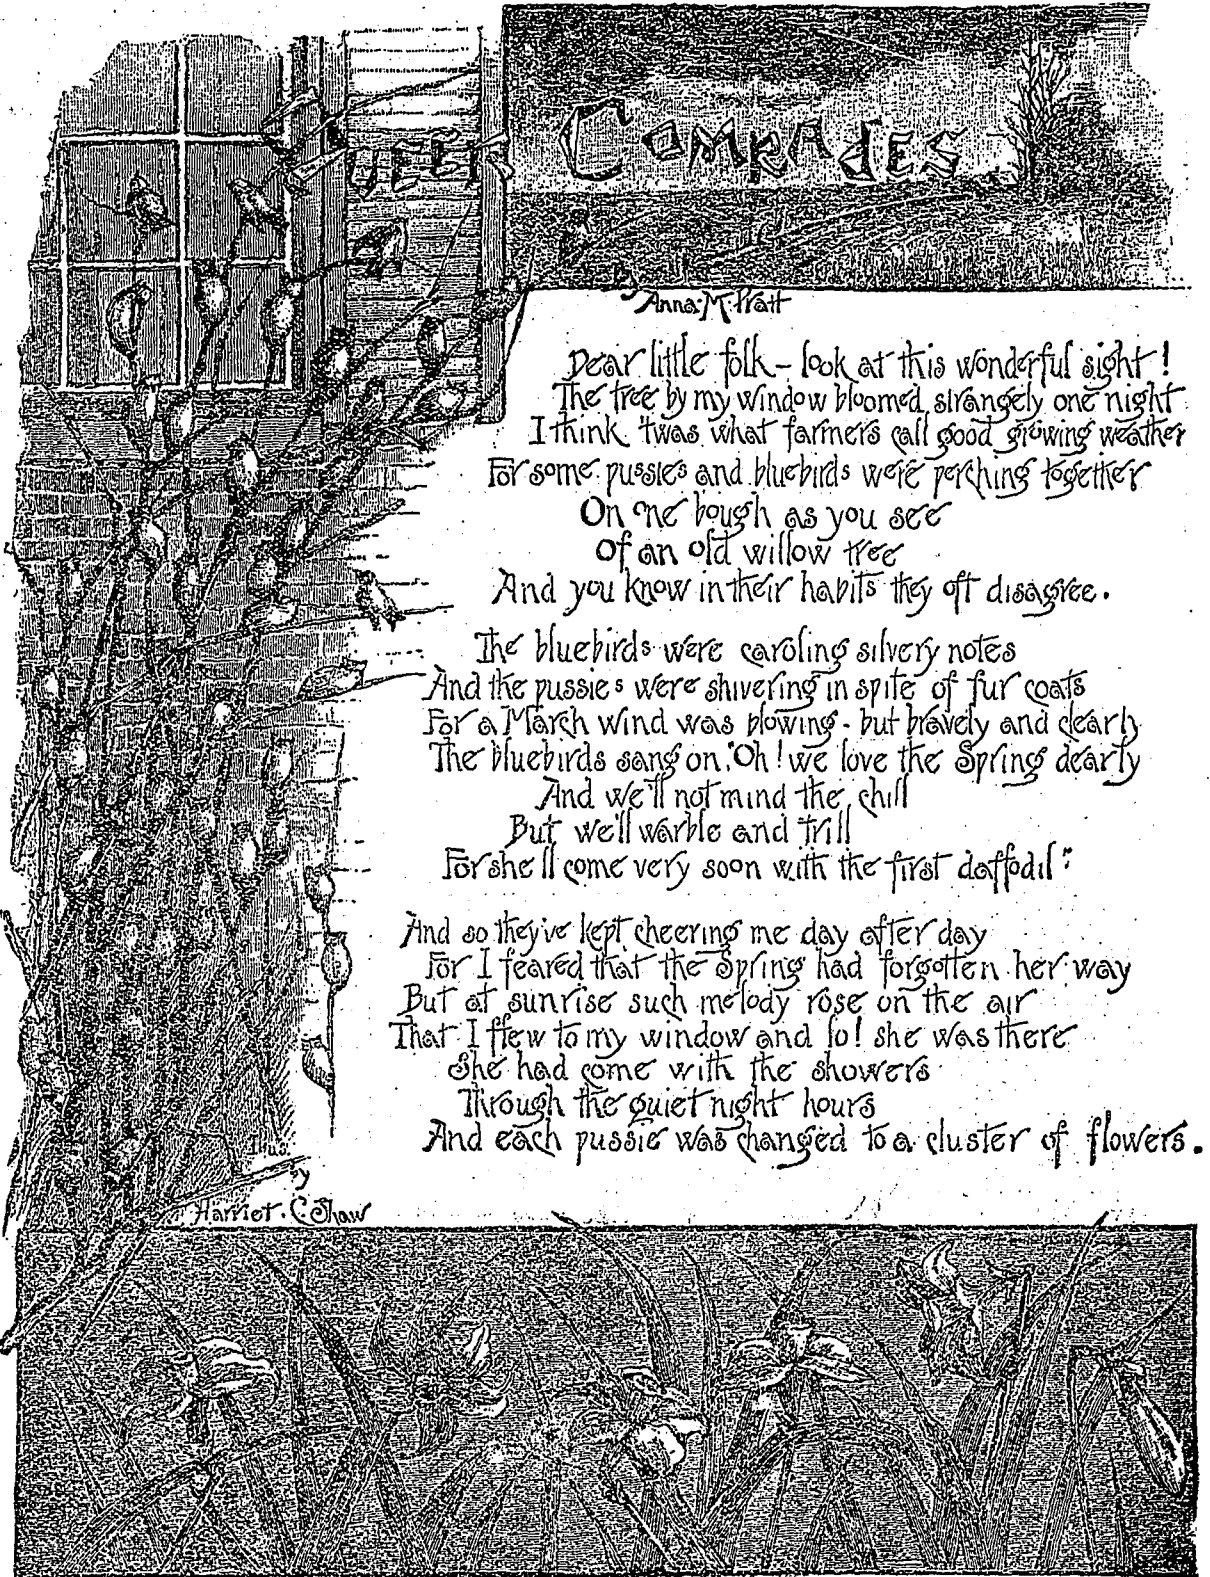 QUEER COMRADES
by Anna. M. Pratt
Dear little folk – look at this wonderful sight!
The tree by my window bloomed strangely one night
I think 'twas what farmers call good growing weather
For some pussies and bluebirds were perching together
On one bough as you see
Of an old willow tree
And you know in their habits they oft disagree.
The bluebirds were caroling silvery notes
And the pussies were shivering in spite of fur coats
For a March wind was blowing - but bravely and clearly
The bluebirds sang on, "Oh! we love the Spring dearly
And we'll not mind the chill
But we'll warble and trill
For she'll come very soon with the first daffodil."
And so they've kept cheering me day after day
For I feared that the Spring had forgotten her way
But at sunrise such melody rose on the air
That I flew to my window and lo! she was there
She had come with the showers
Through the quiet night hours
And each pussie was changed to a cluster of flowers.
Illus.
by
Harriet. C. Shaw